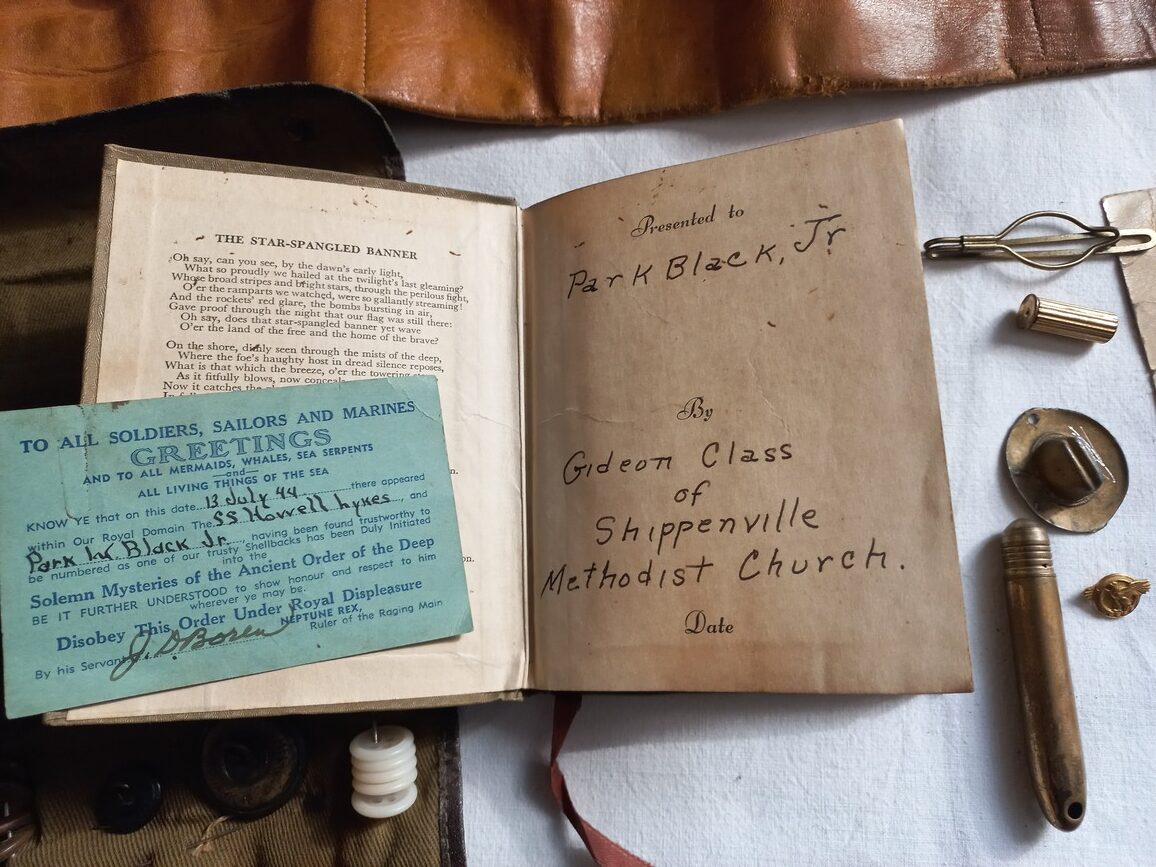 THE STAR-SPANGLED BANNER
Oh say, can you see, by the dawn's early light,
What so proudly we hailed at the twilight's last gleaming?
Whose broad stripes and bright stars, through the perilous fight,
O'er the ramparts we watched, were so gallantly streaming!
And the rockets' red glare, the bombs bursting in air,
Gave proof through the night that our flag was still there:
Oh say, does that star-spangled banner yet wave
O'er the land of the free and the home of the brave?
On the shore, dimly seen through the mists of the deep,
Where the foe's haughty host in dread silence reposes,
What is that which the breeze, o'er the towering
As it fitfully blows, now
Now it catches the
TO ALL SOLDIERS, SAILORS AND MARINES
GREETINGS
AND TO ALL MERMAIDS, WHALES, SEA SERPENTS
—and—
ALL LIVING THINGS OF THE SEA
KNOW YE that on this date 13 July 44 there appeared
within Our Royal Domain The SS Howell Lykes, and
Park W. Black Jr., having been found trustworthy to
be numbered as one of our trusty Shellbacks has been Duly Initiated
into the
Solemn Mysteries of the Ancient Order of the Deep
BE IT FURTHER UNDERSTOOD to show honour and respect to him
wherever ye may be.
Disobey This Order Under Royal Displeasure
NEPTUNE REX,
Ruler of the Raging Main
By his Servant J. D Boren
Presented to
Park Black, Jr
By
Gideon Class
of
Shippenville
Methodist Church.
Date